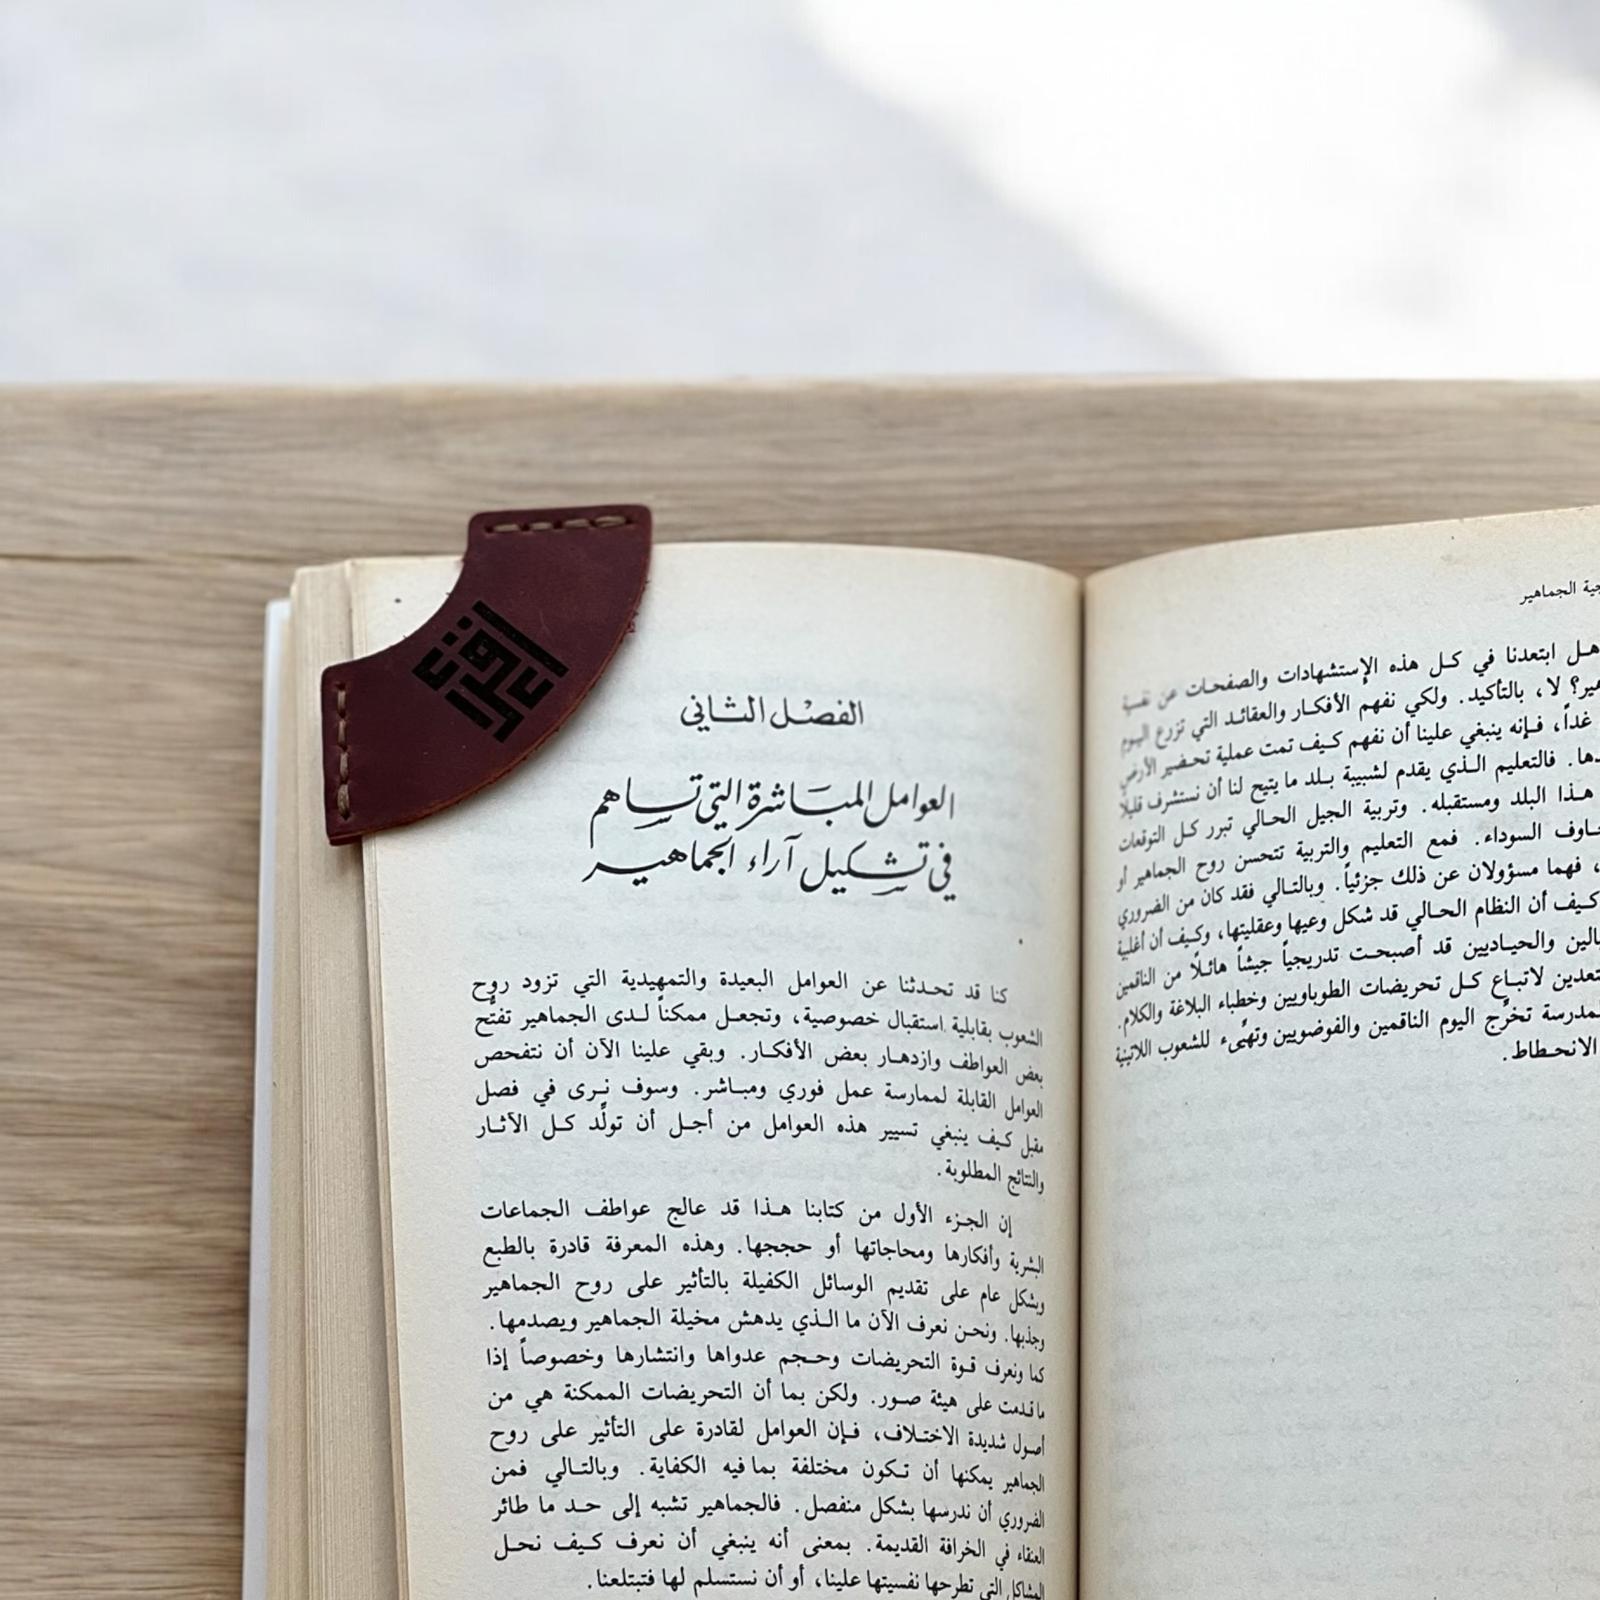 الجماهير
هل ابتعدنا في كل هذه الإستشهادات والصفحات عن نفسية
لا، بالتأكيد. ولكي نفهم الأفكار والعقائد التي تزرع اليوم
غداً، فإنه ينبغي علينا أن نفهم كيف تمت عملية تحضير الأرض
فالتعليم الذي يقدم لشبيبة بلد ما يتيح لنا أن نستشرف قليلًا
هذا البلد ومستقبله. وتربية الجيل الحالي تبرر كل التوقعات
السوداء. فمع التعليم والتربية تتحسن روح الجماهير أو
، فهما مسؤولان عن ذلك جزئياً. وبالتالي فقد كان من الضروري
كيف أن النظام الحالي قد شكل وعيها وعقليتها، وكيف أن أغلبية
والحياديين قد أصبحت تدريجياً جيشاً هائلًا من الناقمين
لاتباع كل تحريضات الطوباويين وخطباء البلاغة والكلام.
تخرّج اليوم الناقمين والفوضويين وتهيّىء للشعوب اللاتينية
الانحطاط.
الفصل الثاني
العوامل المباشرة التي تساهم
في تشكيل آراء الجماهير
كنا قد تحدثنا عن العوامل البعيدة والتمهيدية التي تزود روح
الشعوب بقابلية استقبال خصوصية، وتجعل ممكناً لدى الجماهير تفتّح
بعض العواطف وازدهار بعض الأفكار. وبقي علينا الآن أن نتفحص
العوامل القابلة لممارسة عمل فوري ومباشر. وسوف نرى في فصل
مقبل كيف ينبغي تسيير هذه العوامل من أجل أن تولّد كل الآثار
والنتائج المطلوبة.
إن الجزء الأول من كتابنا هذا قد عالج عواطف الجماعات
البشرية وأفكارها ومحاجاتها أو حججها. وهذه المعرفة قادرة بالطبع
وبشكل عام على تقديم الوسائل الكفيلة بالتأثير على روح الجماهير
وجذبها. ونحن نعرف الآن ما الذي يدهش مخيلة الجماهير ويصدمها.
كما ونعرف قوة التحريضات وحجم عدواها وانتشارها وخصوصاً إذا
ما قدمت على هيئة صور. ولكن بما أن التحريضات الممكنة هي من
أصول شديدة الاختلاف، فإن العوامل لقادرة على التأثير على روح
الجماهير يمكنها أن تكون مختلفة بما فيه الكفاية. وبالتالي فمن
الضروري أن ندرسها بشكل منفصل. فالجماهير تشبه إلى حد ما طائر
العنقاء في الخرافة القديمة. بمعنى أنه ينبغي أن نعرف كيف نحل
المشاكل التي تطرحها نفسيتها علينا، أو أن نستسلم لها فتبتلعنا.